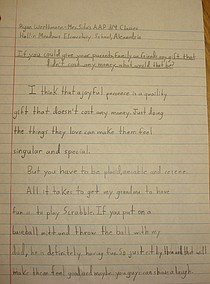 If you could give your parents, family, or friends any gift that
didn't cost any money what would that be?
I think that a joyful presence is a quality
gift that doesn't cost any money. Just doing
the things they love can make them feel
singular and special.
But you have to be and serene.
All it takes to get my grandma to have
fun is to play Scrabble. If you put on a
baseball mitt and throw the ball with my
dad, he is definitely having fun. So just sit by them and that will
make them feel good and maybe you guys can share a laugh.